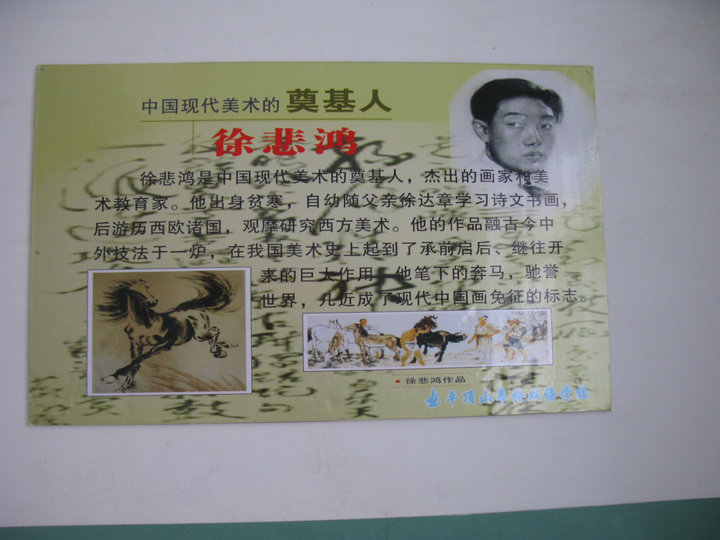 中国现代美术的奠基人
徐悲鸿
徐悲鸿是中国现代美术的奠基人，杰出的画家和美
术教育家。他出身贫寒，自幼随父亲徐达章学习诗文书画，
后游历西欧诸国，观摩研究西方美术。他的作品融古今中
外技法于一炉，在我国美术史上起到了承前启后、继往开
来的巨大作用。他笔下的奔马，驰誉
世界，几近成了现代中国画免征的标志。
徐悲鸿作品